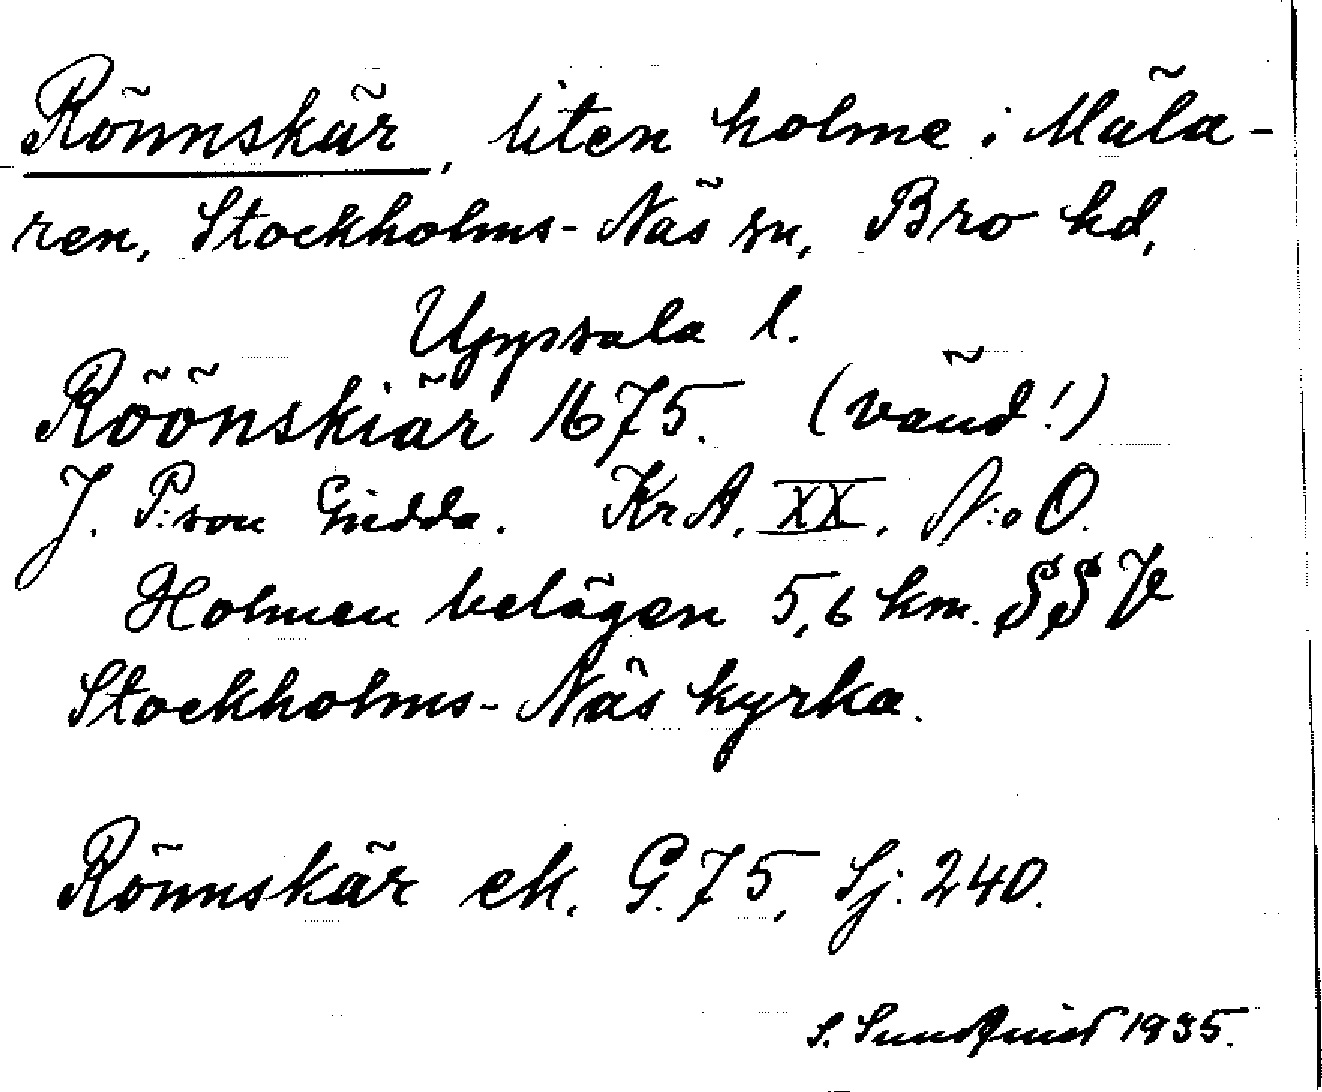 Rönnskär, liten holme i Mäla-
ren, Stockholms-Näs sn, Bro hd,
Uppsala l.
Röönskiär 1675. (vänd!)
J. P:son Gädda. KrA. XX. N:o O.
Holmen belägen 5,6 km. SSV
Stockholms-Näs kyrka.
Rönnskär ek. G.75, Sj. 240.
S. Sundquist 1935.